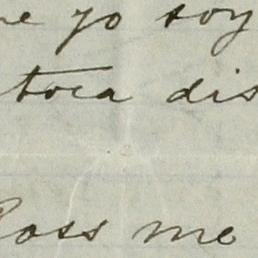 yo soy
toca dis
Ross me